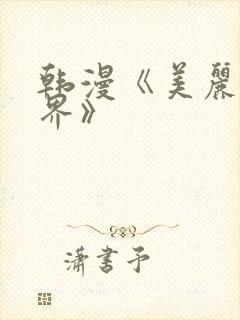 韩漫《美麗
界》
潇書予